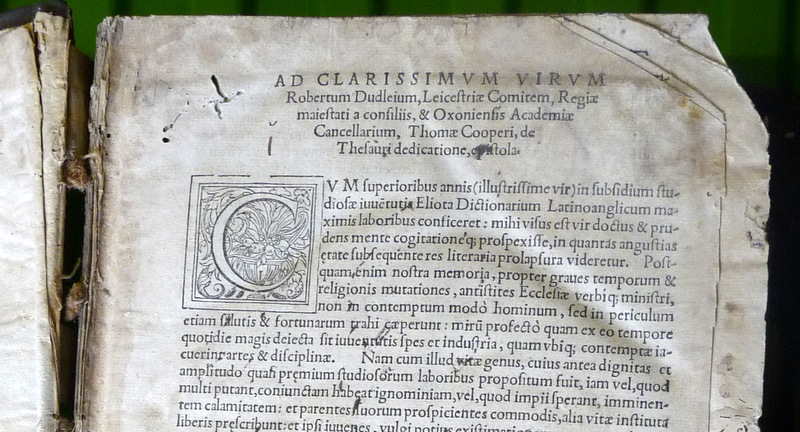 AD CLARISSIMVM VIRVM
Robertum Dudleium, Leicestriæ Comitem, Regiæ
maiestati a consiliis, & Oxoniensis Academiæ
Cancellarium, Thomæ Cooperi, de
Thesauri dedicatione, epistola.
CVM superioribus annis (illustrissime vir) in subsidium stu-
diosæ iuuētutis Eliota Dictionarium Latinoanglicum ma-
ximis laboribus conficeret: mihi visus est vir doctus & pru-
dens mente cogitationeq; prospexisse, in quantas angustias
ętate subsequente res literaria prolapsura videretur. Post-
quam enim nostra memoria, propter graues temporum &
religionis mutationes, antistites Ecclesiæ verbiq; ministri,
non in contemptum modò hominum, sed in periculum
etiam salutis & fortunarum trahi cæperunt: mirū profectò quam ex eo tempore
quotidie magis deiecta sit iuuentutis spes et industria, quam vbiq; contemptæ ia-
cuerint artes & disciplinæ. Nam cum illud vitæ genus, cuius antea dignitas et
amplitudo quasi pręmium studiosorum laboribus propositum fuit, iam vel, quod
multi putant, coniunctam habeat ignominiam, vel, quod impii sperant, imminen-
tem calamitatem: et parentes suorum prospicientes commodis, alia vitæ instituta
liberis prescribunt: et ipsi iuuenes, vulgi potius